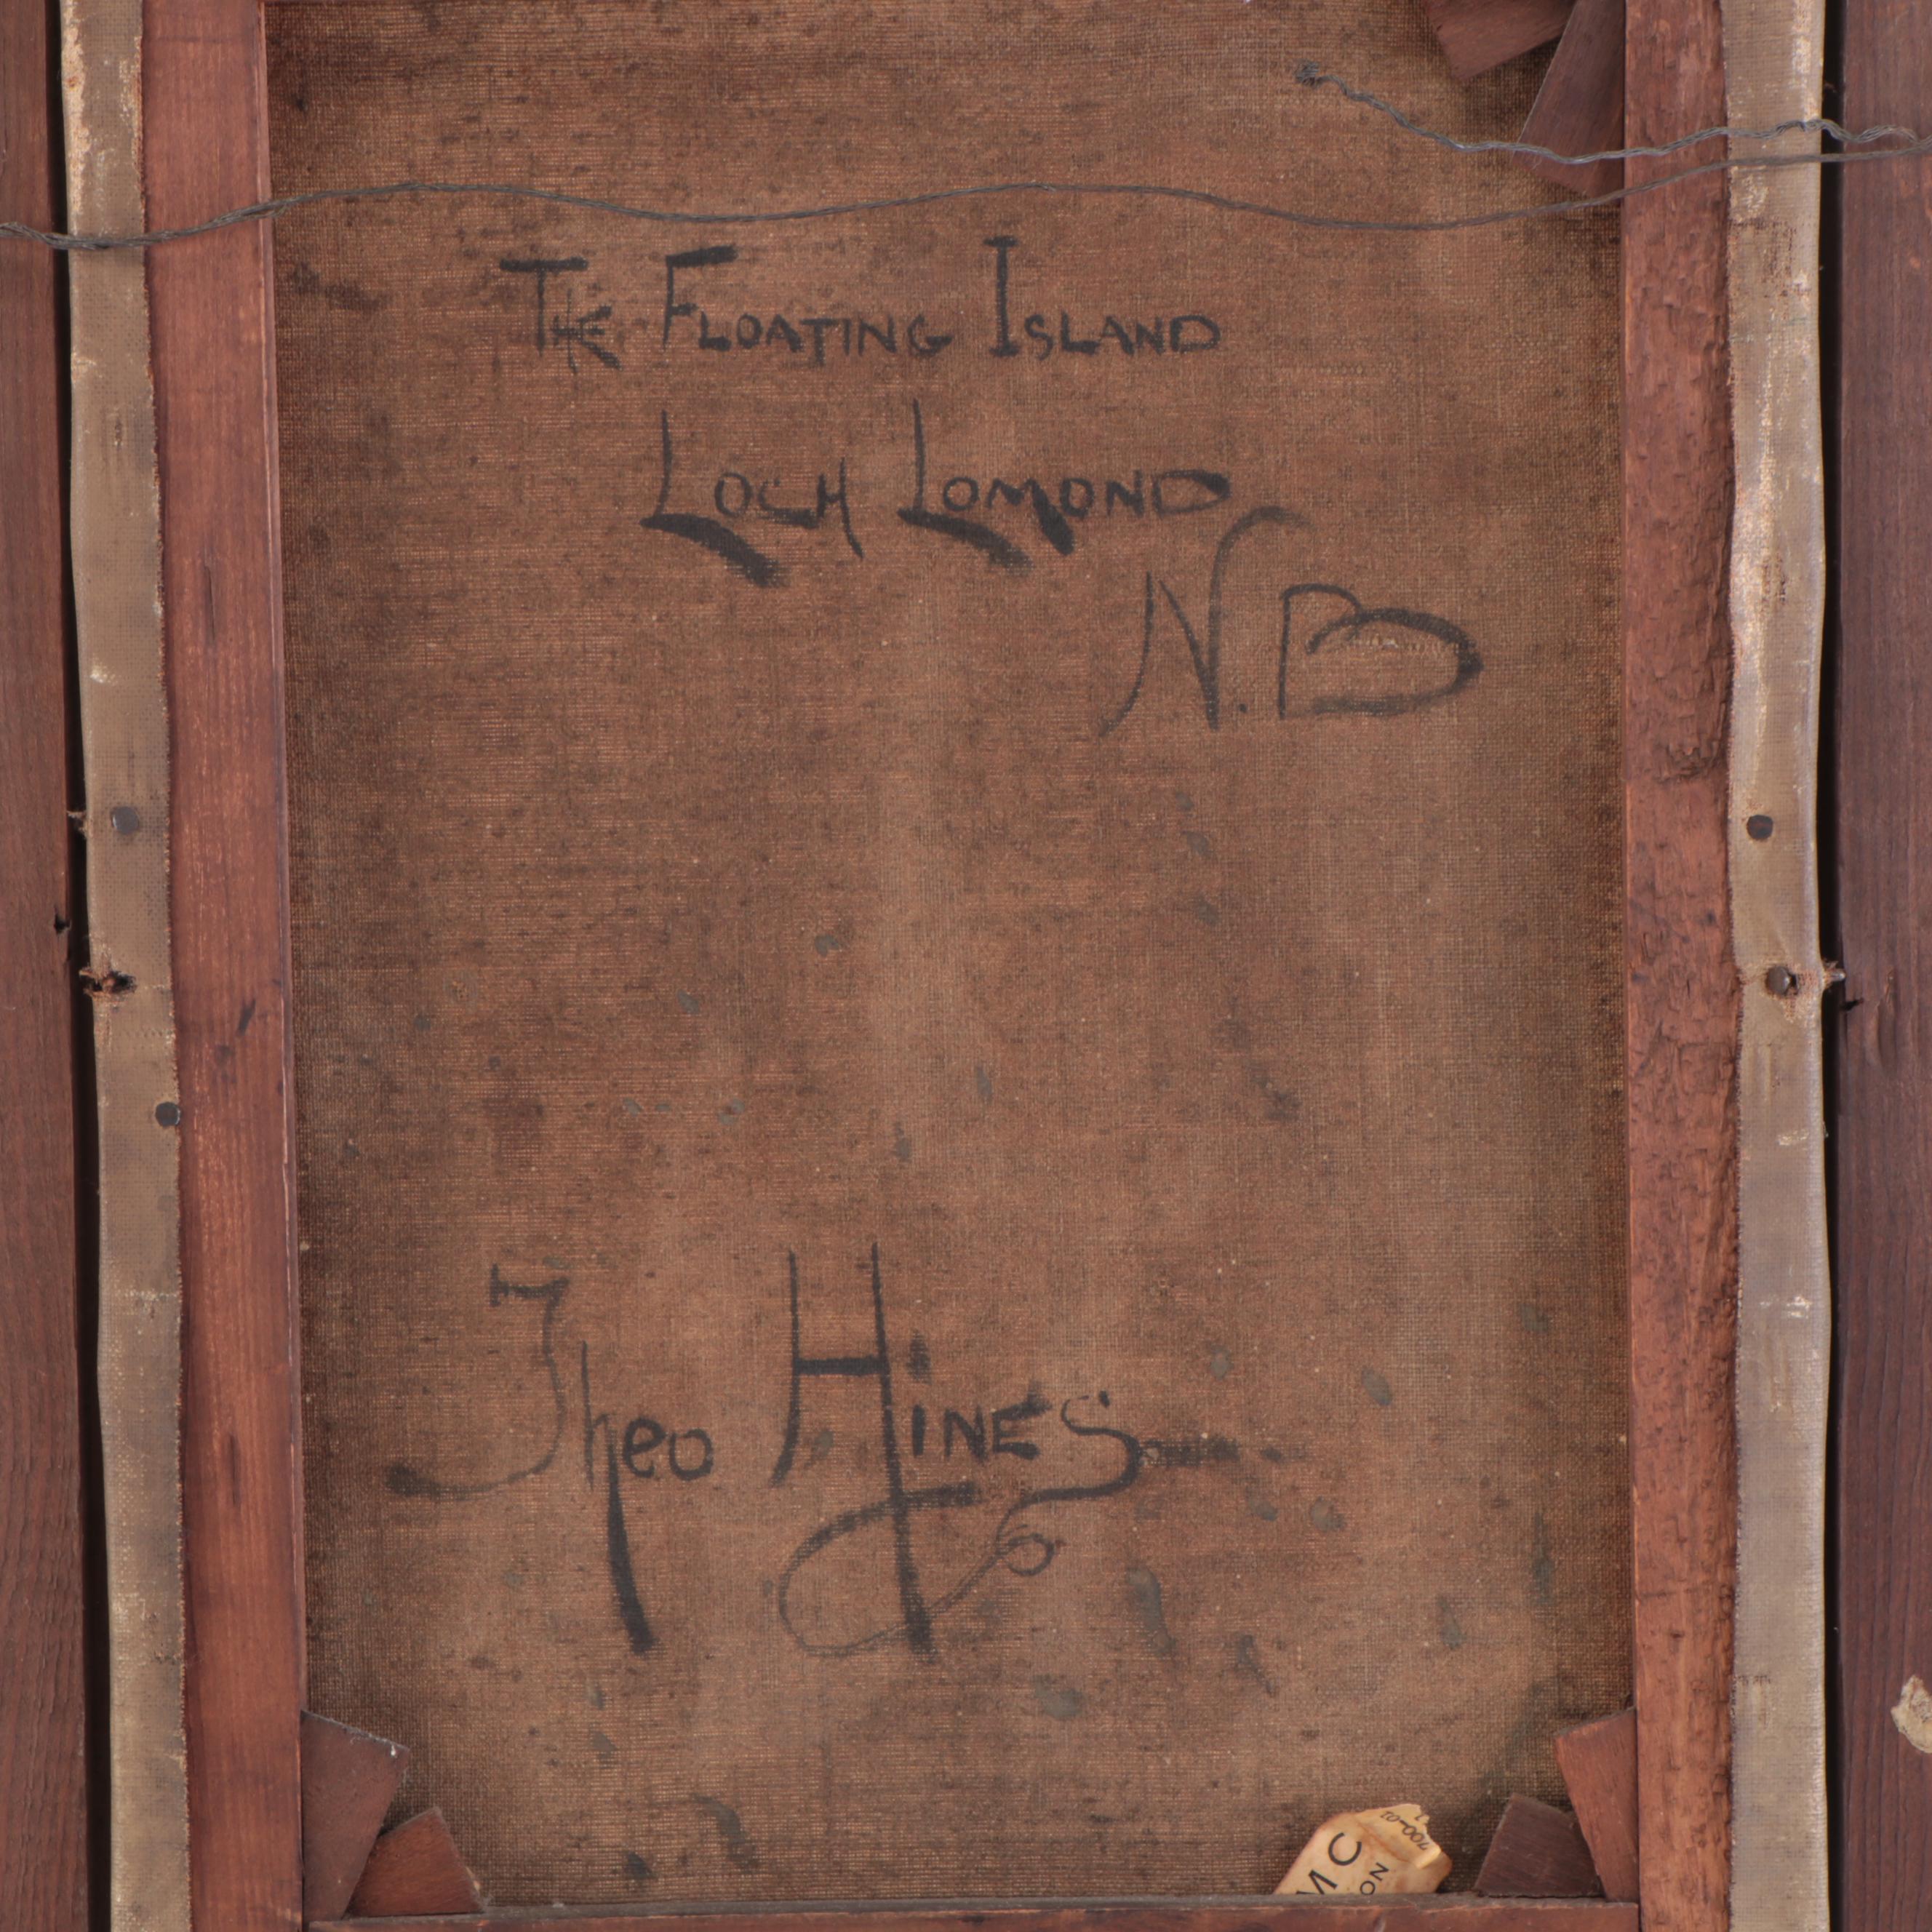 The Floating Island
Loch Lomond
N.B
Theo Hines
MC
ON